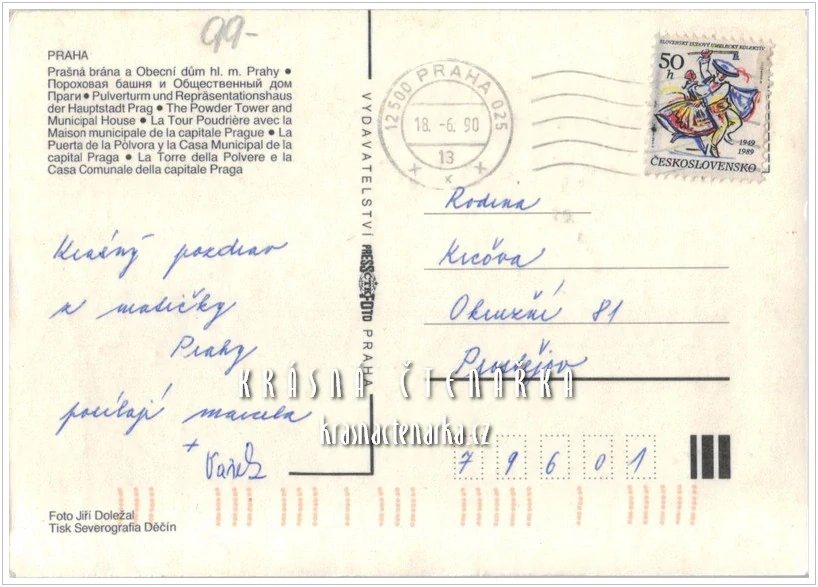 99-
PRAHA
Prašná brána a Obecní dům hl. m. Prahy •
Пороховая башня и Общественный дом
Праги • Pulverturm und Repräsentationshaus
der Hauptstadt Prag • The Powder Tower and
Municipal House • La Tour Poudrière avec la
Maison municipale de la capitale Prague • La
Puerta de la Pólvora y la Casa Municipal de la
capital Praga • La Torre della Polvere e la
Casa Comunale della capitale Praga
Krásný pozdrav
z matičky
Prahy
posílají Marcela
+
Foto Jiří Doležal
Tisk Severografia Děčín
VYDAVATELSTVÍ PRESSFOTO PRAHA
ČTK
12500 PRAHA 025
18. -6. 90
13
x x x
SLOVENSKÝ ĽUDOVÝ UMELECKÝ KOLEKTÍV
50
h
1949
1989
ČESKOSLOVENSKO
Rodina
Okružní 81
Prostějov
79601
KRÁSNÁ ČTENÁŘKA
krasnactenarka.cz